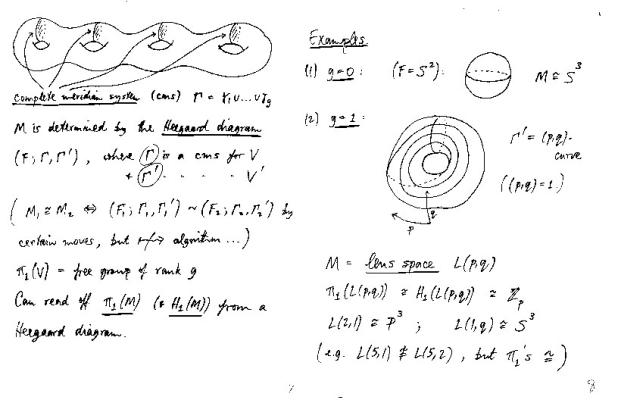 complete meridian system (cms) Γ = γ₁ ∪ ... ∪ γg
M is determined by the Heegaard diagram
(F; Γ, Γ'), where Γ is a cms for V
+ Γ' . . . . . V'
( M₁ ≅ M₂ ⇔ (F₁; Γ₁, Γ₁') ~ (F₂; Γ₂, Γ₂') by
certain moves, but ↛ algorithm ... )
π₁(V) = free group of rank g
Can read off π₁(M) (+ H₁(M)) from a
Heegaard diagram.
7
Examples
(1) g=0 : (F = S²) : M ≅ S³
(2) g=1 :
Γ' = (p,q)-
curve
((p,q)=1.)
q
p
M = lens space L(p,q)
π₁(L(p,q)) ≅ H₁(L(p,q)) ≅ ℤp
L(2,1) ≅ P³ ; L(1,q) ≅ S³
(e.g. L(5,1) ≇ L(5,2) , but π₁'s ≅ )
8